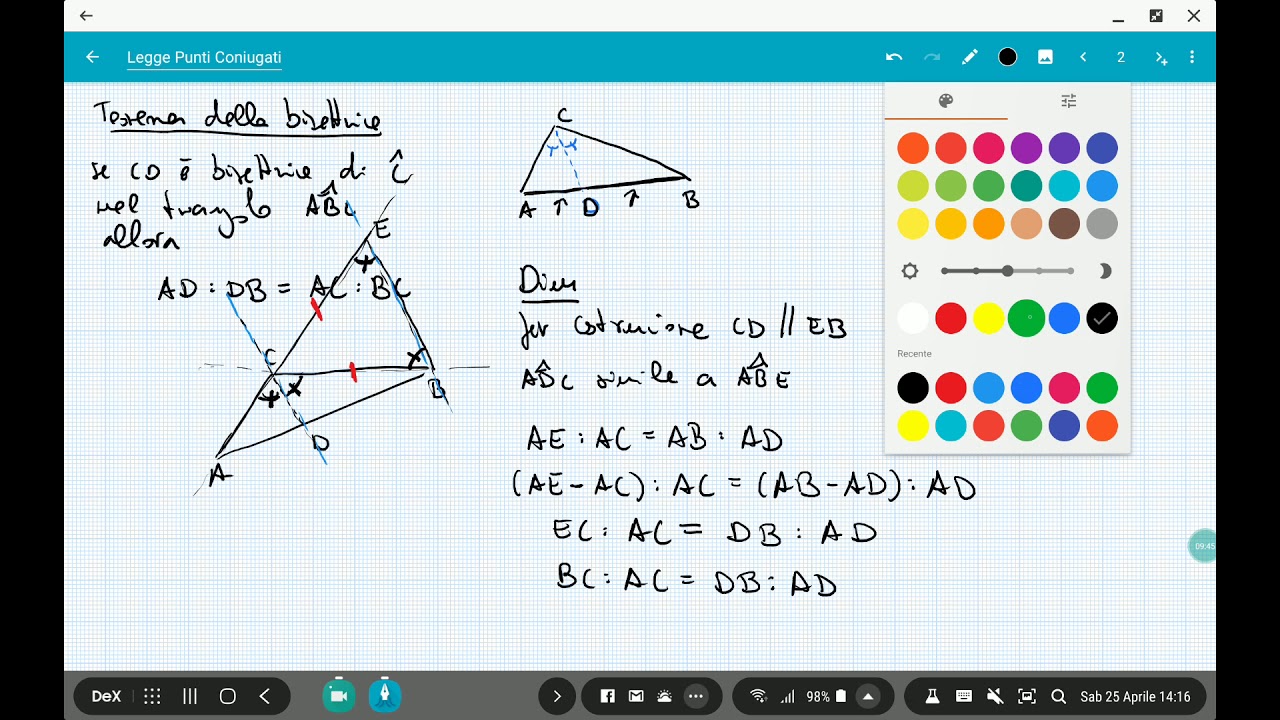 Legge Punti Coniugati
2
Teorema della bisettrice
se CD è bisettrice di Ĉ
nel triangolo ABC
allora
AD : DB = AC : BC
C
A
D
B
E
C
B
D
A
Dim
per costruzione CD // EB
ADC simile a ABE
AE : AC = AB : AD
(AE - AC) : AC = (AB - AD) : AD
EC : AC = DB : AD
BC : AC = DB : AD
Recente
09:45
DeX
98%
Sab 25 Aprile 14:16